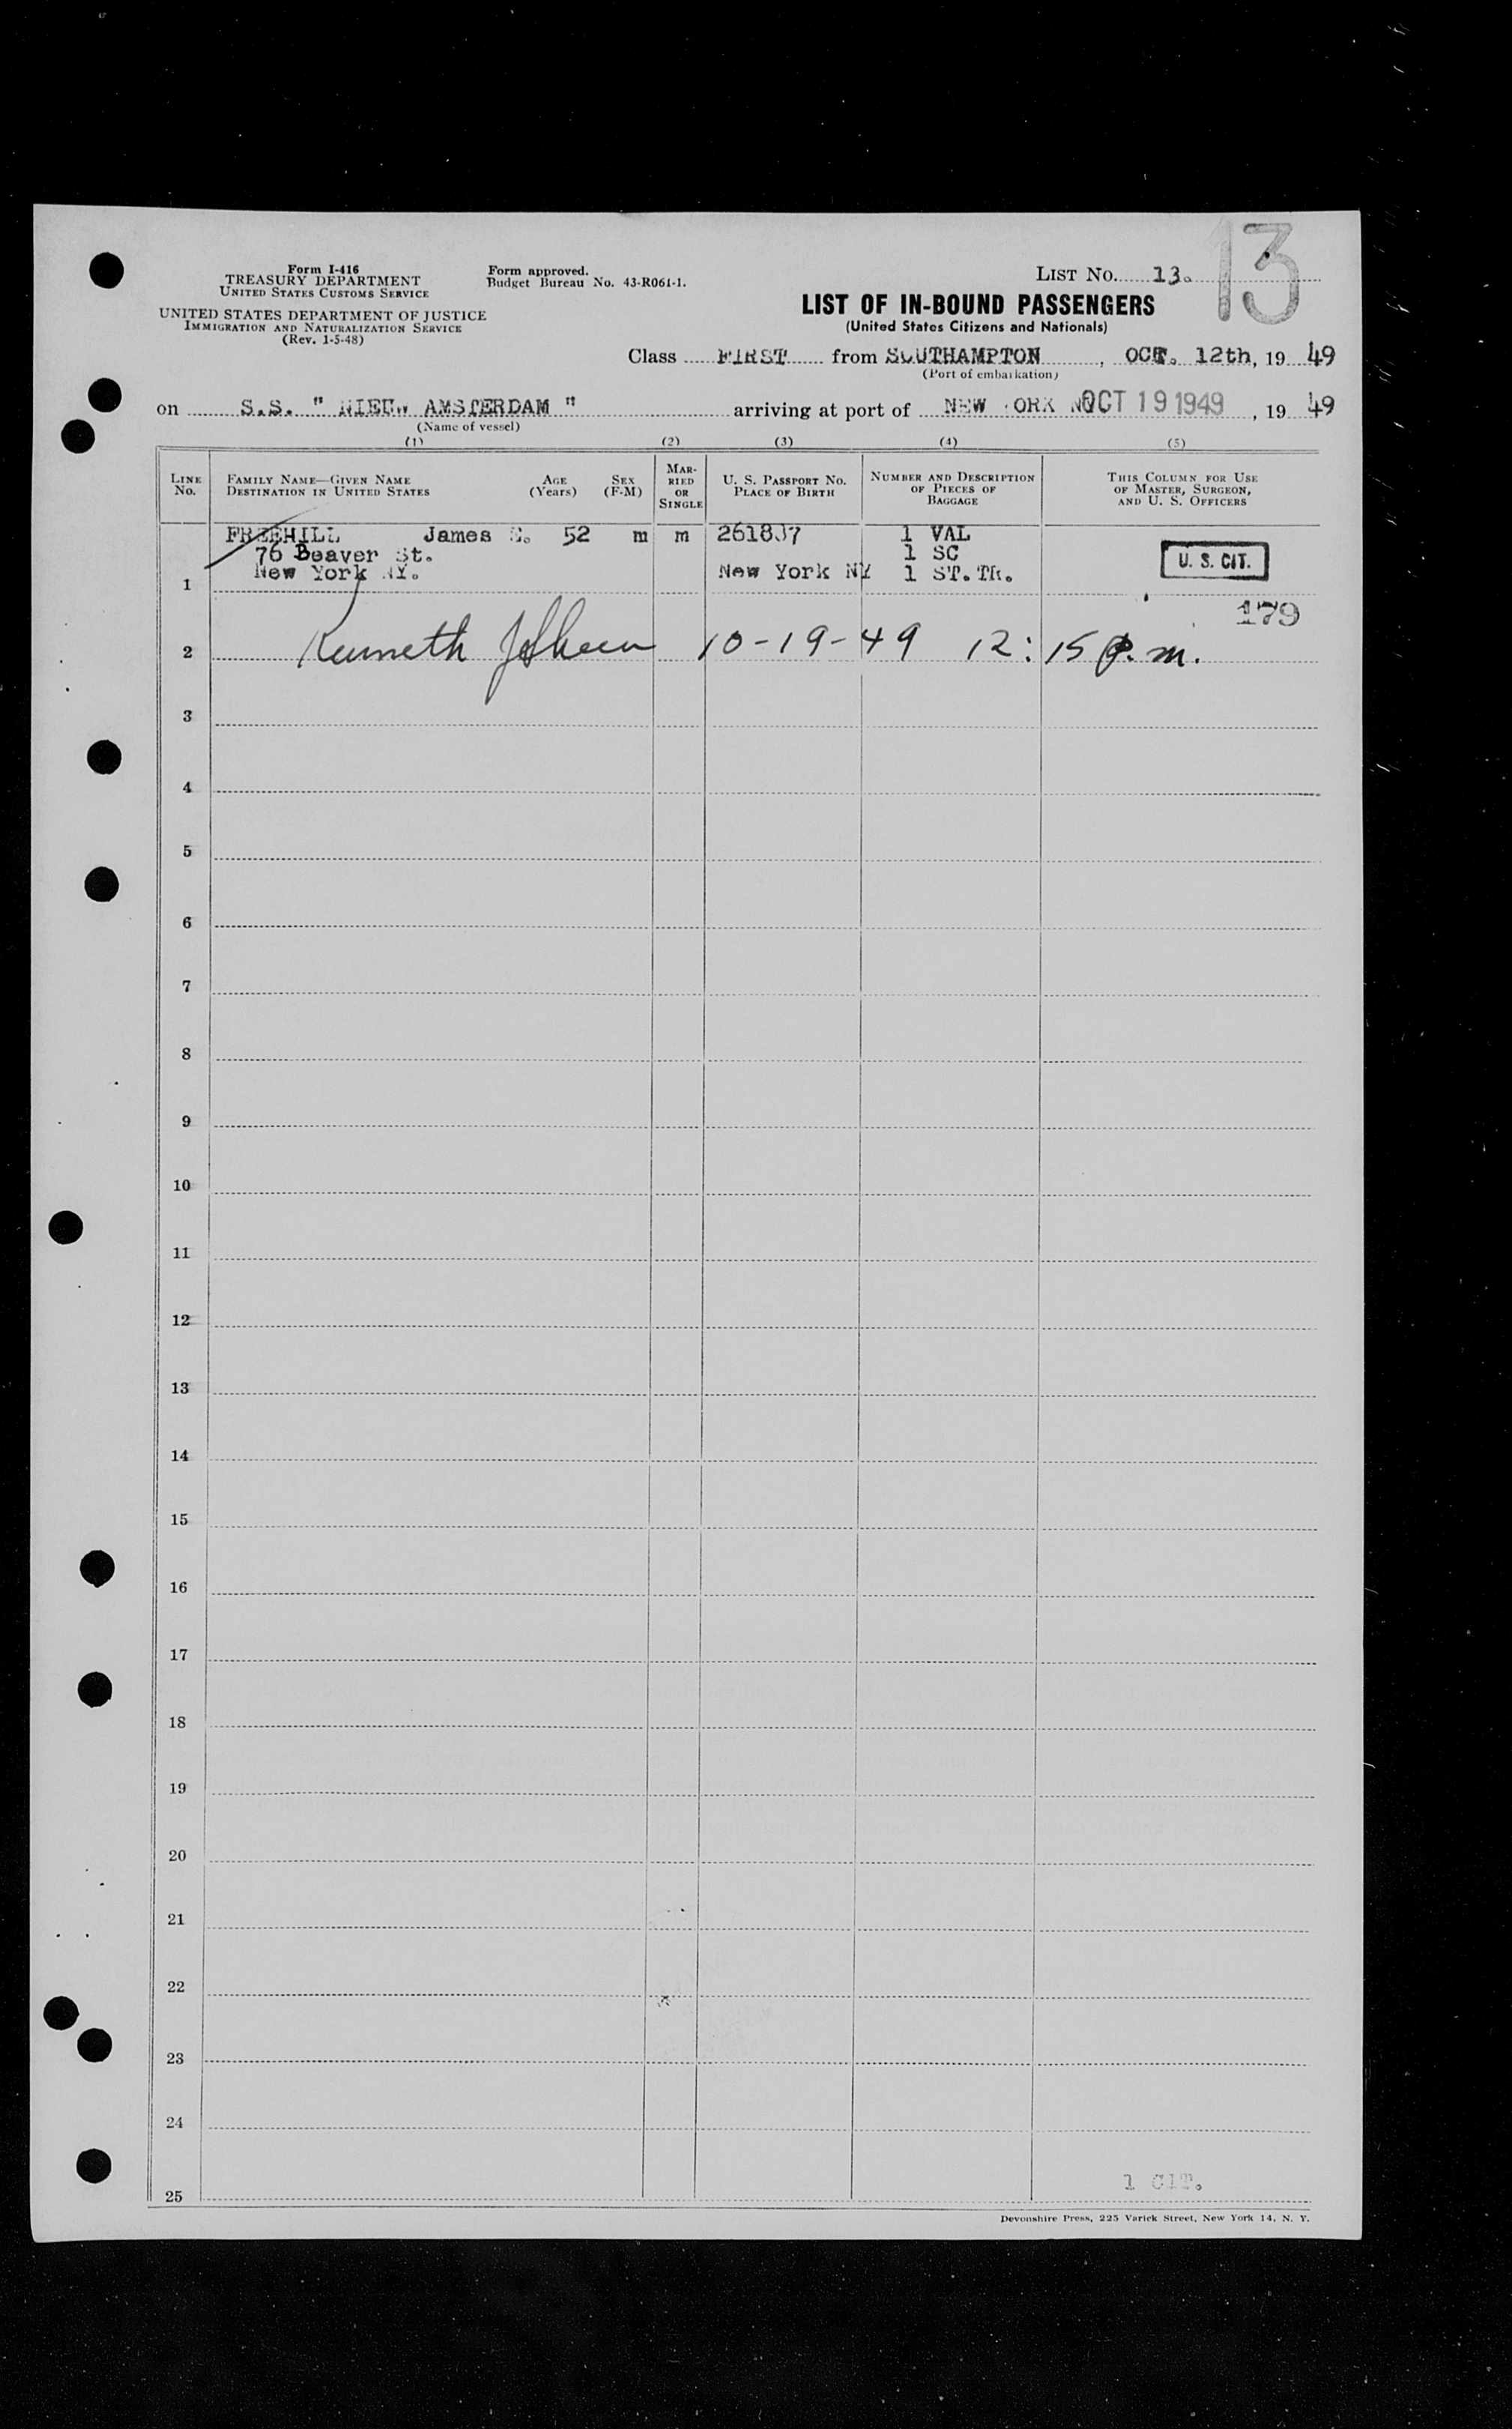 13
Form I-416
TREASURY DEPARTMENT
UNITED STATES CUSTOMS SERVICE
UNITED STATES DEPARTMENT OF JUSTICE
IMMIGRATION AND NATURALIZATION SERVICE
(Rev. 1-5-48)
Form approved.
Budget Bureau No. 43-R061-1.
LIST NO. 13.
LIST OF IN-BOUND PASSENGERS
(United States Citizens and Nationals)
Class FIRST from SOUTHAMPTON, OCT. 12th, 19 49
(Port of embarkation)
on S.S. " NIEUW AMSTERDAM " arriving at port of NEW YORK OCT 19 1949, 19 49
(Name of vessel)
(1) (2) (3) (4) (5)
LINE No.
FAMILY NAME—GIVEN NAME
DESTINATION IN UNITED STATES
AGE (Years)
SEX (F-M)
MARRIED OR SINGLE
U. S. PASSPORT NO.
PLACE OF BIRTH
NUMBER AND DESCRIPTION OF PIECES OF BAGGAGE
THIS COLUMN FOR USE OF MASTER, SURGEON, AND U. S. OFFICERS
FREEHILL James 52 m m 261837 1 VAL
76 Beaver St. 1 SC U. S. CIT.
New York NY. New York NY 1 ST.TR.
1
179
2 Kenneth 10-19-49 12:15 P.m.
3
4
5
6
7
8
9
10
11
12
13
14
15
16
17
18
19
20
21
22
23
24
1 CIT.
25
Devonshire Press, 225 Varick Street, New York 14, N. Y.